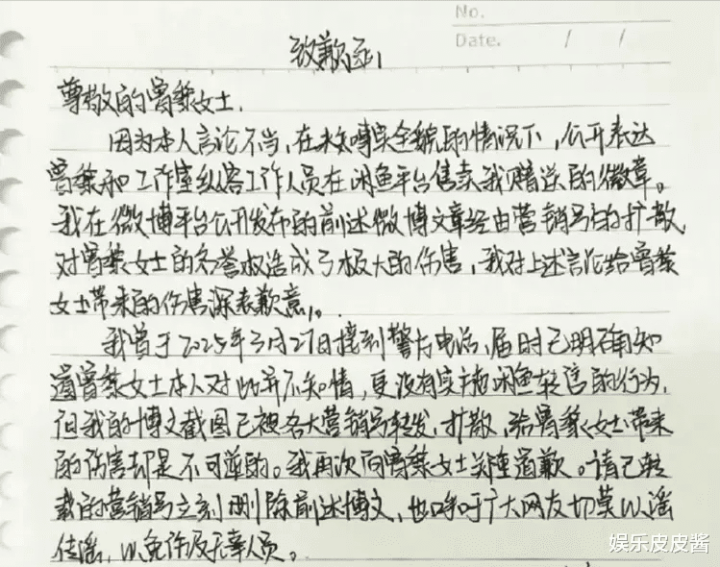 No.
Date. / /
致歉函
尊敬的曾黎女士,
因为本人言论不当,在未知事实全貌的情况下,公开表达
曾黎和工作室纵容工作人员在闲鱼平台售卖我赠送的徽章。
我在微博平台公开发布的前述微博文章经由营销号的扩散,
对曾黎女士的名誉权造成了极大的伤害,我对上述言论给曾黎
女士带来的伤害深表歉意。
我曾于2025年3月27日接到警方电话,届时已明确知
道曾黎女士本人对此并不知情,更没有实施闲鱼转售的行为,
但我的博文截图已被各大营销号转发、扩散,给曾黎女士带来
的伤害却是不可逆的。我再次向曾黎女士郑重道歉。请已转
载的营销号立刻删除前述博文,也呼吁广大网友切莫以谣
传谣,以免伤及无辜人员。
娱乐皮皮酱